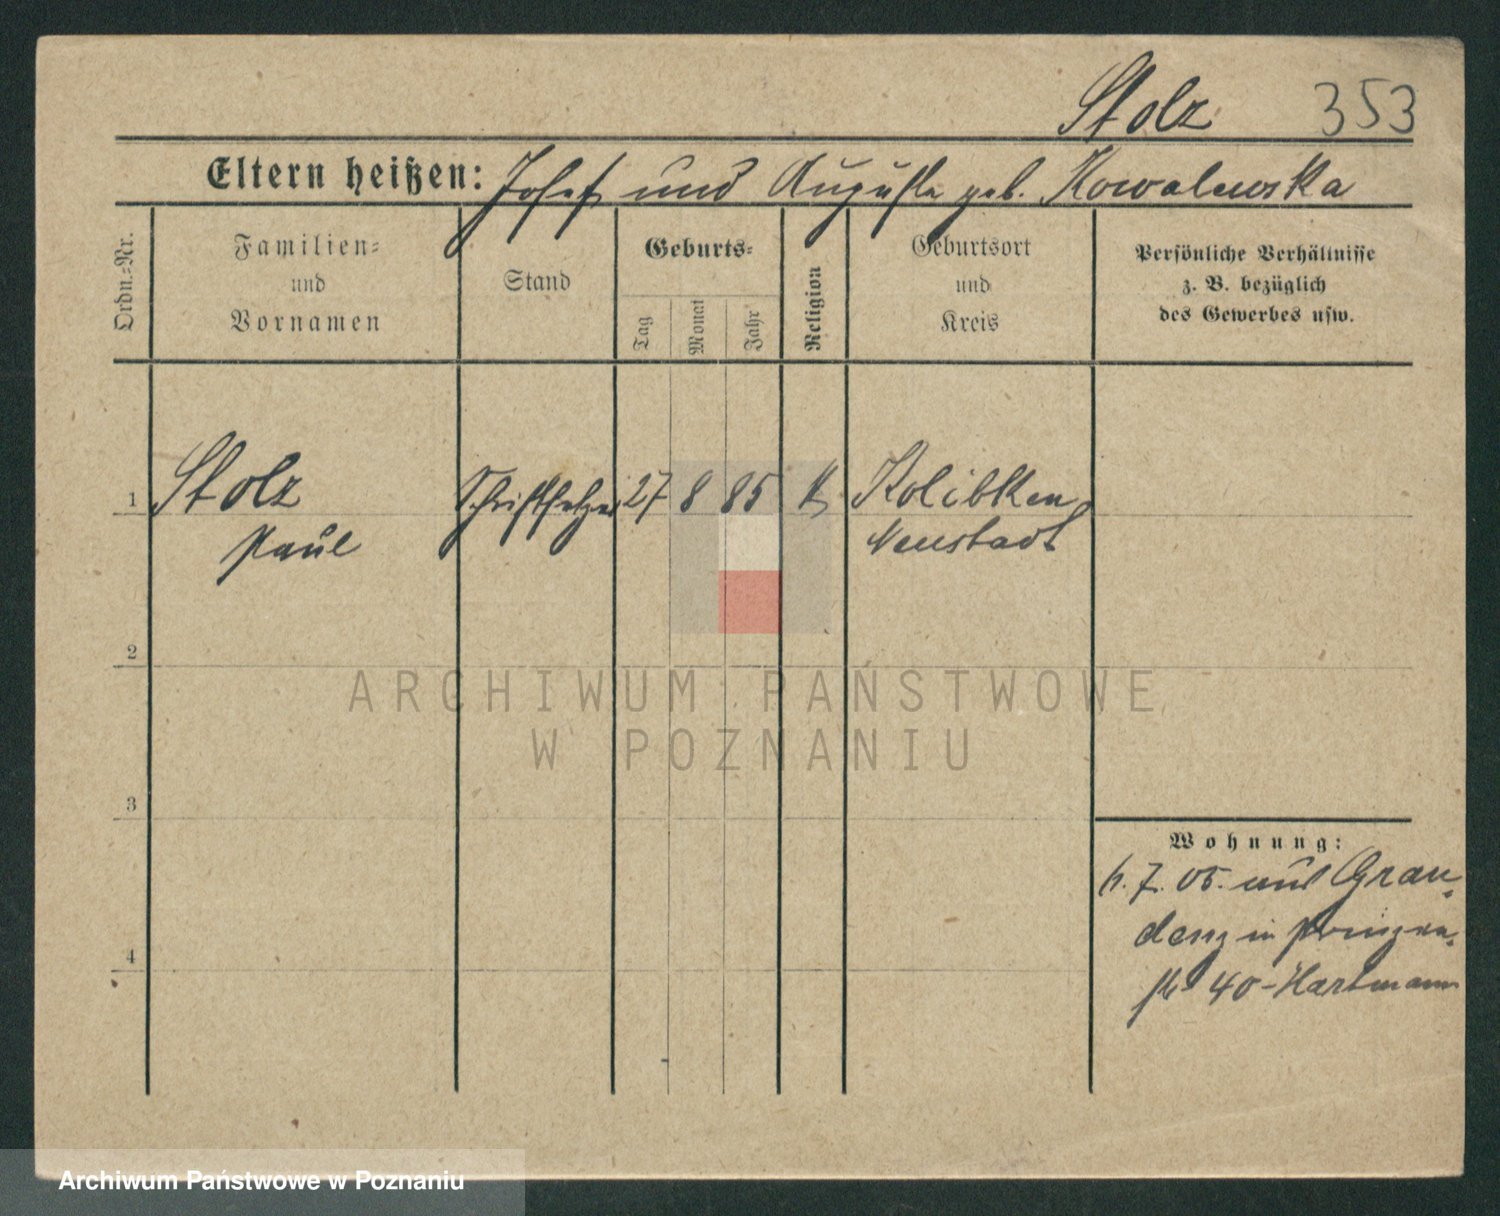 Stolz 353
Eltern heißen: Josef und Auguste geb. Kowalewska
Ordn.=Nr.
Familien=
und
Vornamen
Stand
Geburts=
Tag
Monat
Jahr
Religion
Geburtsort
und
Kreis
Persönliche Verhältnisse
z. B. bezüglich
des Gewerbes usw.
1 Stolz Schriftsetzer 27 8 85 k Kolibken
Paul Neustadt
2
ARCHIWUM PAŃSTWOWE
W POZNANIU
3
Wohnung:
7. 05. aus Grau=
denz in Prinzen=
str 40 - Hartmann
4
Archiwum Państwowe w Poznaniu